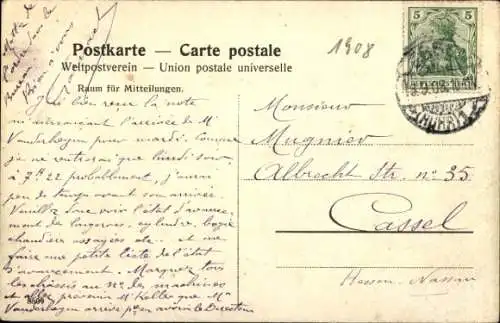 Postkarte — Carte postale
Weltpostverein — Union postale universelle
Raum für Mitteilungen.
1908
5 5
J'ai bien reçu la note
m'annonçant l'arrivée de Mr
Vanderhagen pour mardi. Comme
je ne rentrerai que lundi soir
à 7h 22 probablement, j'aurai
peu de temps avant son arrivée.
Veuillez donc voir l'état d'avance-
ment de cylindre, bogie
chaudières essayées etc. et me
faire une petite liste de l'état
d'avancement. Marquez tous
les châssis au no des machines
et allez prévenir Mr Keller que Mr
Vanderhagen arrive pr en avoir le Directeur
Monsieur
Mugnier
Albrecht Str. no 35
Cassel
Hessen-Nassau